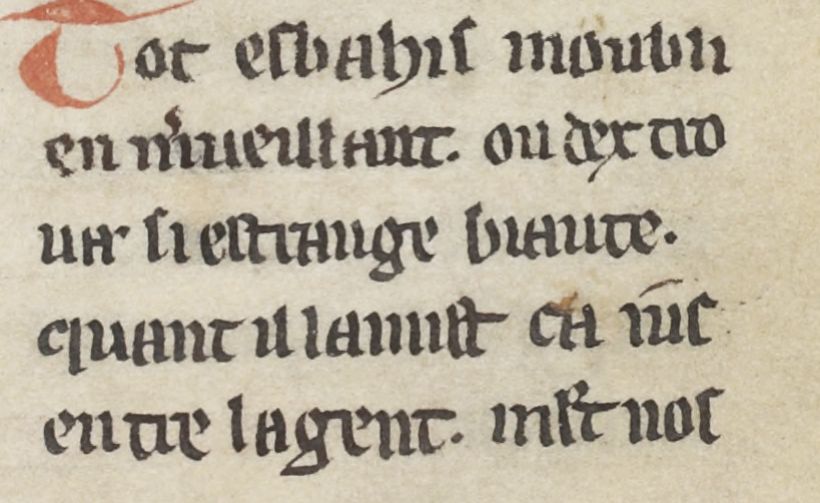 Tot esbahis moubli
en m̾ueillant. ou dex tro
ua si estrange biaute.
quant il la mist ca ius
entre la gent. mlt nos